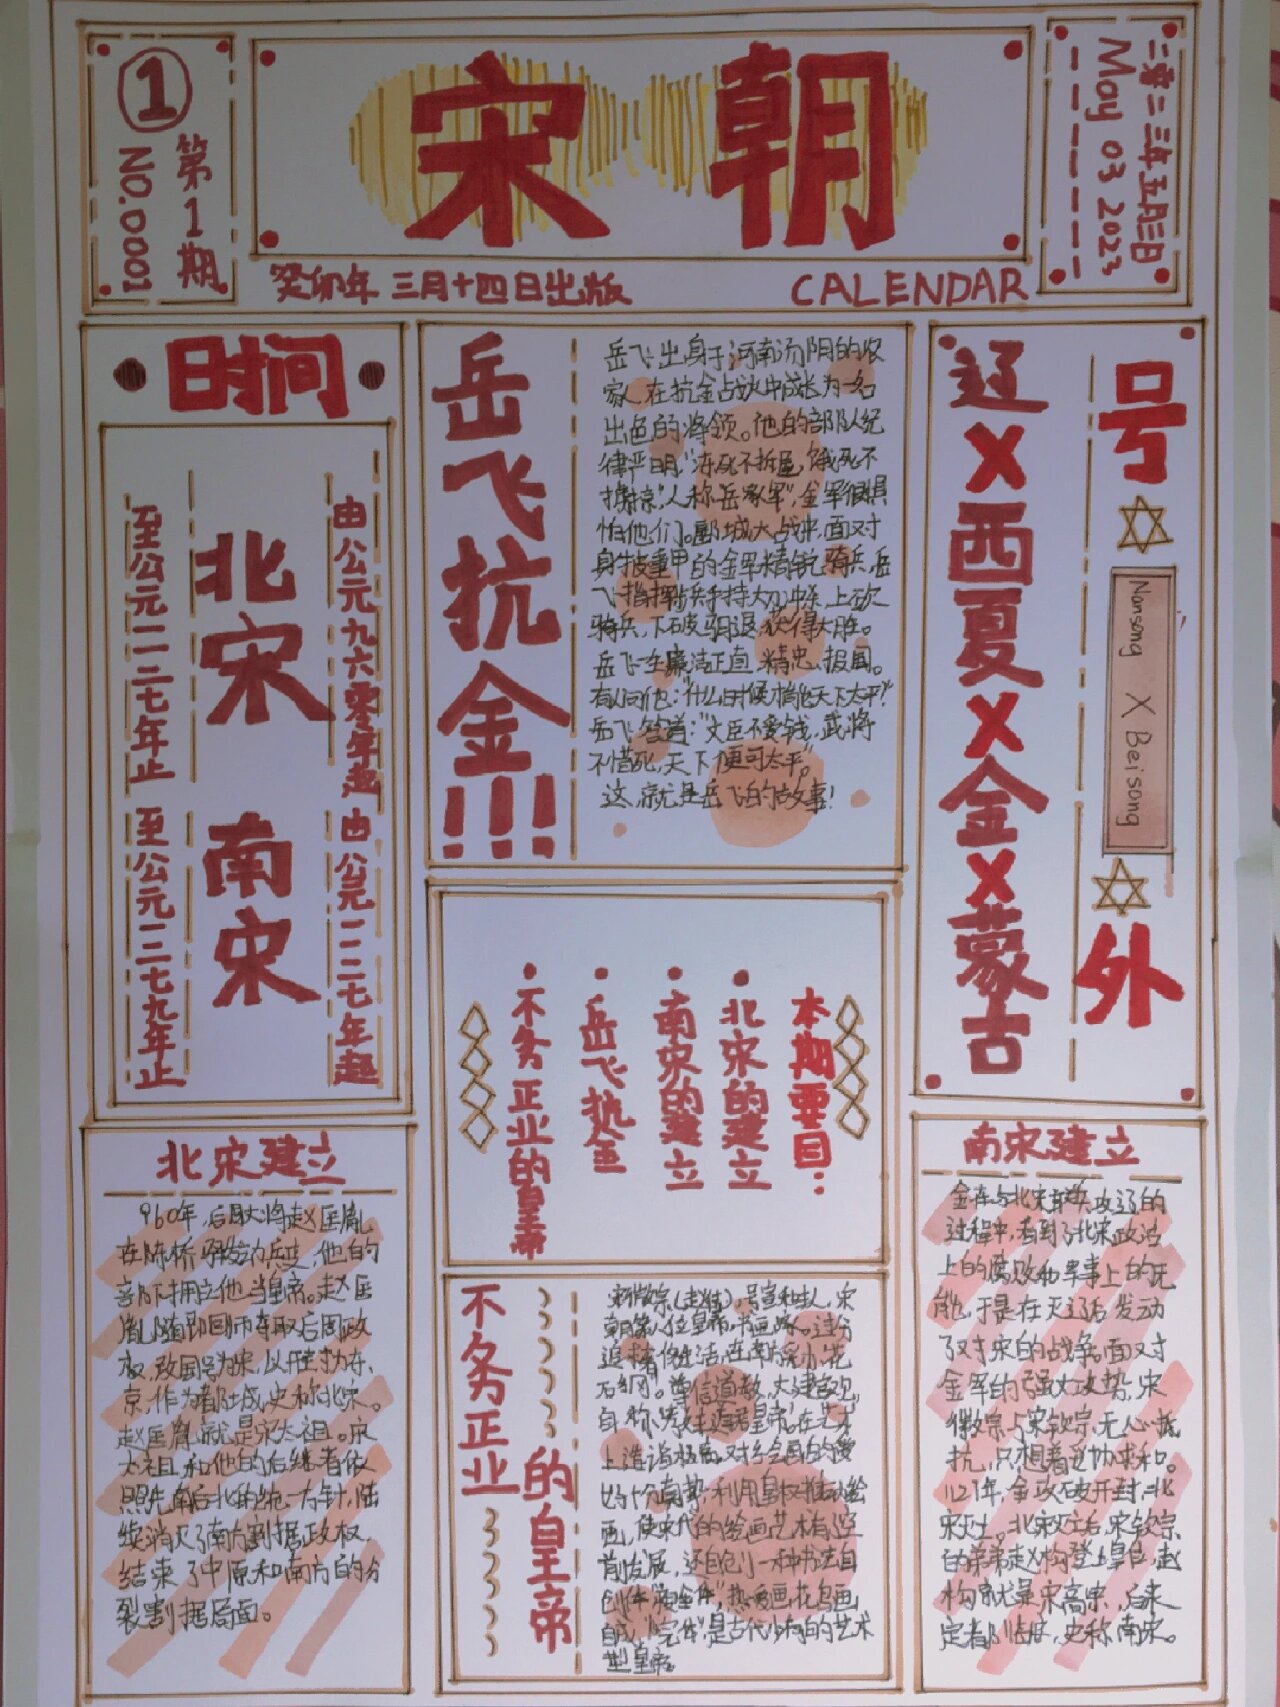 ①
第1期
NO.0001
宋朝
二零二三年五月三日
May 03 2023
癸卯年 三月十四日出版
CALENDAR
时间
北宋
由公元九六零年起
至公元一一二七年止
南宋
由公元一一二七年起
至公元一二七九年止
岳飞抗金!!!
岳飞出身于河南汤阴的农
家,在抗金战火中成长为一名
出色的将领。他的部队纪
律严明,“冻死不拆屋,饿死不
掳掠”,人称“岳家军”,金军很惧
怕他们。郾城大战中,面对
身披重甲的金军精锐骑兵,岳
飞指挥骑兵手持大刀冲杀,上砍
骑兵,下砍马退,获得大胜。
岳飞一生廉洁正直,精忠报国。
有人问他:“什么时候才能天下太平?”
岳飞答道:“文臣不爱钱,武将
不惜死,天下便可太平。”
这就是岳飞的故事!
号外
Nansong X Beisong
辽X西夏X金X蒙古
本期要目:
•北宋的建立
•南宋的建立
•岳飞抗金
•不务正业的皇帝
北宋建立
960年,后周大将赵匡胤
在陈桥驿发动兵变,他的
部下拥立他当皇帝。赵匡
胤随即回师夺取后周政
权,改国号为宋,以开封为东
京,作为都城,史称北宋。
赵匡胤就是宋太祖。宋
太祖和他的后继者依
照先南后北的统一方针,陆
续消灭了南方割据政权,
结束了中原和南方的分
裂割据局面。
不务正业的皇帝
宋徽宗(赵佶),号宣和主人,宋
朝第八位皇帝,书画家。过分
追求奢侈生活,在南方采办“花
石纲”。尊信道教,大建宫观,
自称“教主道君皇帝”。在艺术
上造诣极高。对绘画的爱
画,使宋代的绘画艺术有了空
前发展,还自创了一种书法字
型皇帝。
南宋建立
金在与北宋联兵攻辽的
过程中,看到了北宋政治
上的腐败和军事上的无
能,于是在灭辽后发动
了对宋的战争。面对
金军的强大攻势,宋
徽宗与宋钦宗无心抵
抗,只想着妥协求和。
1127年,金攻破开封,北
宋灭亡。北宋灭亡后,宋钦宗
的弟弟赵构登上皇位,赵
构就是宋高宗,后来
定都临安,史称南宋。